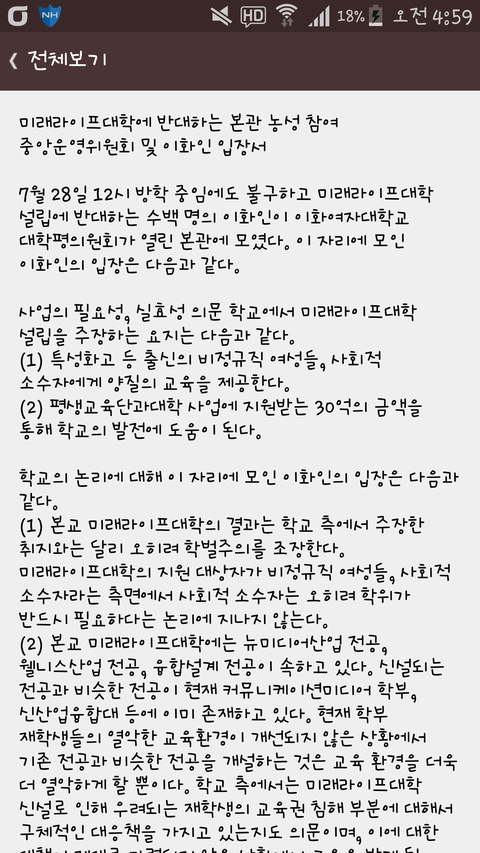 NH HD 18% 오전 4:59
< 전체보기
미래라이프대학에 반대하는 본관 농성 참여
중앙운영위원회 및 이화인 입장서
7월 28일 12시 방학 중임에도 불구하고 미래라이프대학
설립에 반대하는 수백 명의 이화인이 이화여자대학교
대학평의원회가 열린 본관에 모였다. 이 자리에 모인
이화인의 입장은 다음과 같다.
사업의 필요성, 실효성 의문 학교에서 미래라이프대학
설립을 주장하는 요지는 다음과 같다.
(1) 특성화고 등 출신의 비정규직 여성들, 사회적
소수자에게 양질의 교육을 제공한다.
(2) 평생교육단과대학 사업에 지원받는 30억의 금액을
통해 학교의 발전에 도움이 된다.
학교의 논리에 대해 이 자리에 모인 이화인의 입장은 다음과
같다.
(1) 본교 미래라이프대학의 결과는 학교 측에서 주장한
취지와는 달리 오히려 학벌주의를 조장한다.
미래라이프대학의 지원 대상자가 비정규직 여성들, 사회적
소수자라는 측면에서 사회적 소수자는 오히려 학위가
반드시 필요하다는 논리에 지나지 않는다.
(2) 본교 미래라이프대학에는 뉴미디어산업 전공,
웰니스산업 전공, 융합설계 전공이 속하고 있다. 신설되는
전공과 비슷한 전공이 현재 커뮤니케이션미디어 학부,
신산업융합대 등에 이미 존재하고 있다. 현재 학부
재학생들의 열악한 교육환경이 개선되지 않은 상황에서
기존 전공과 비슷한 전공을 개설하는 것은 교육 환경을 더욱
더 열악하게 할 뿐이다. 학교 측에서는 미래라이프대학
신설로 인해 우려되는 재학생의 교육권 침해 부분에 대해서
구체적인 대응책을 가지고 있는지도 의문이며, 이에 대한